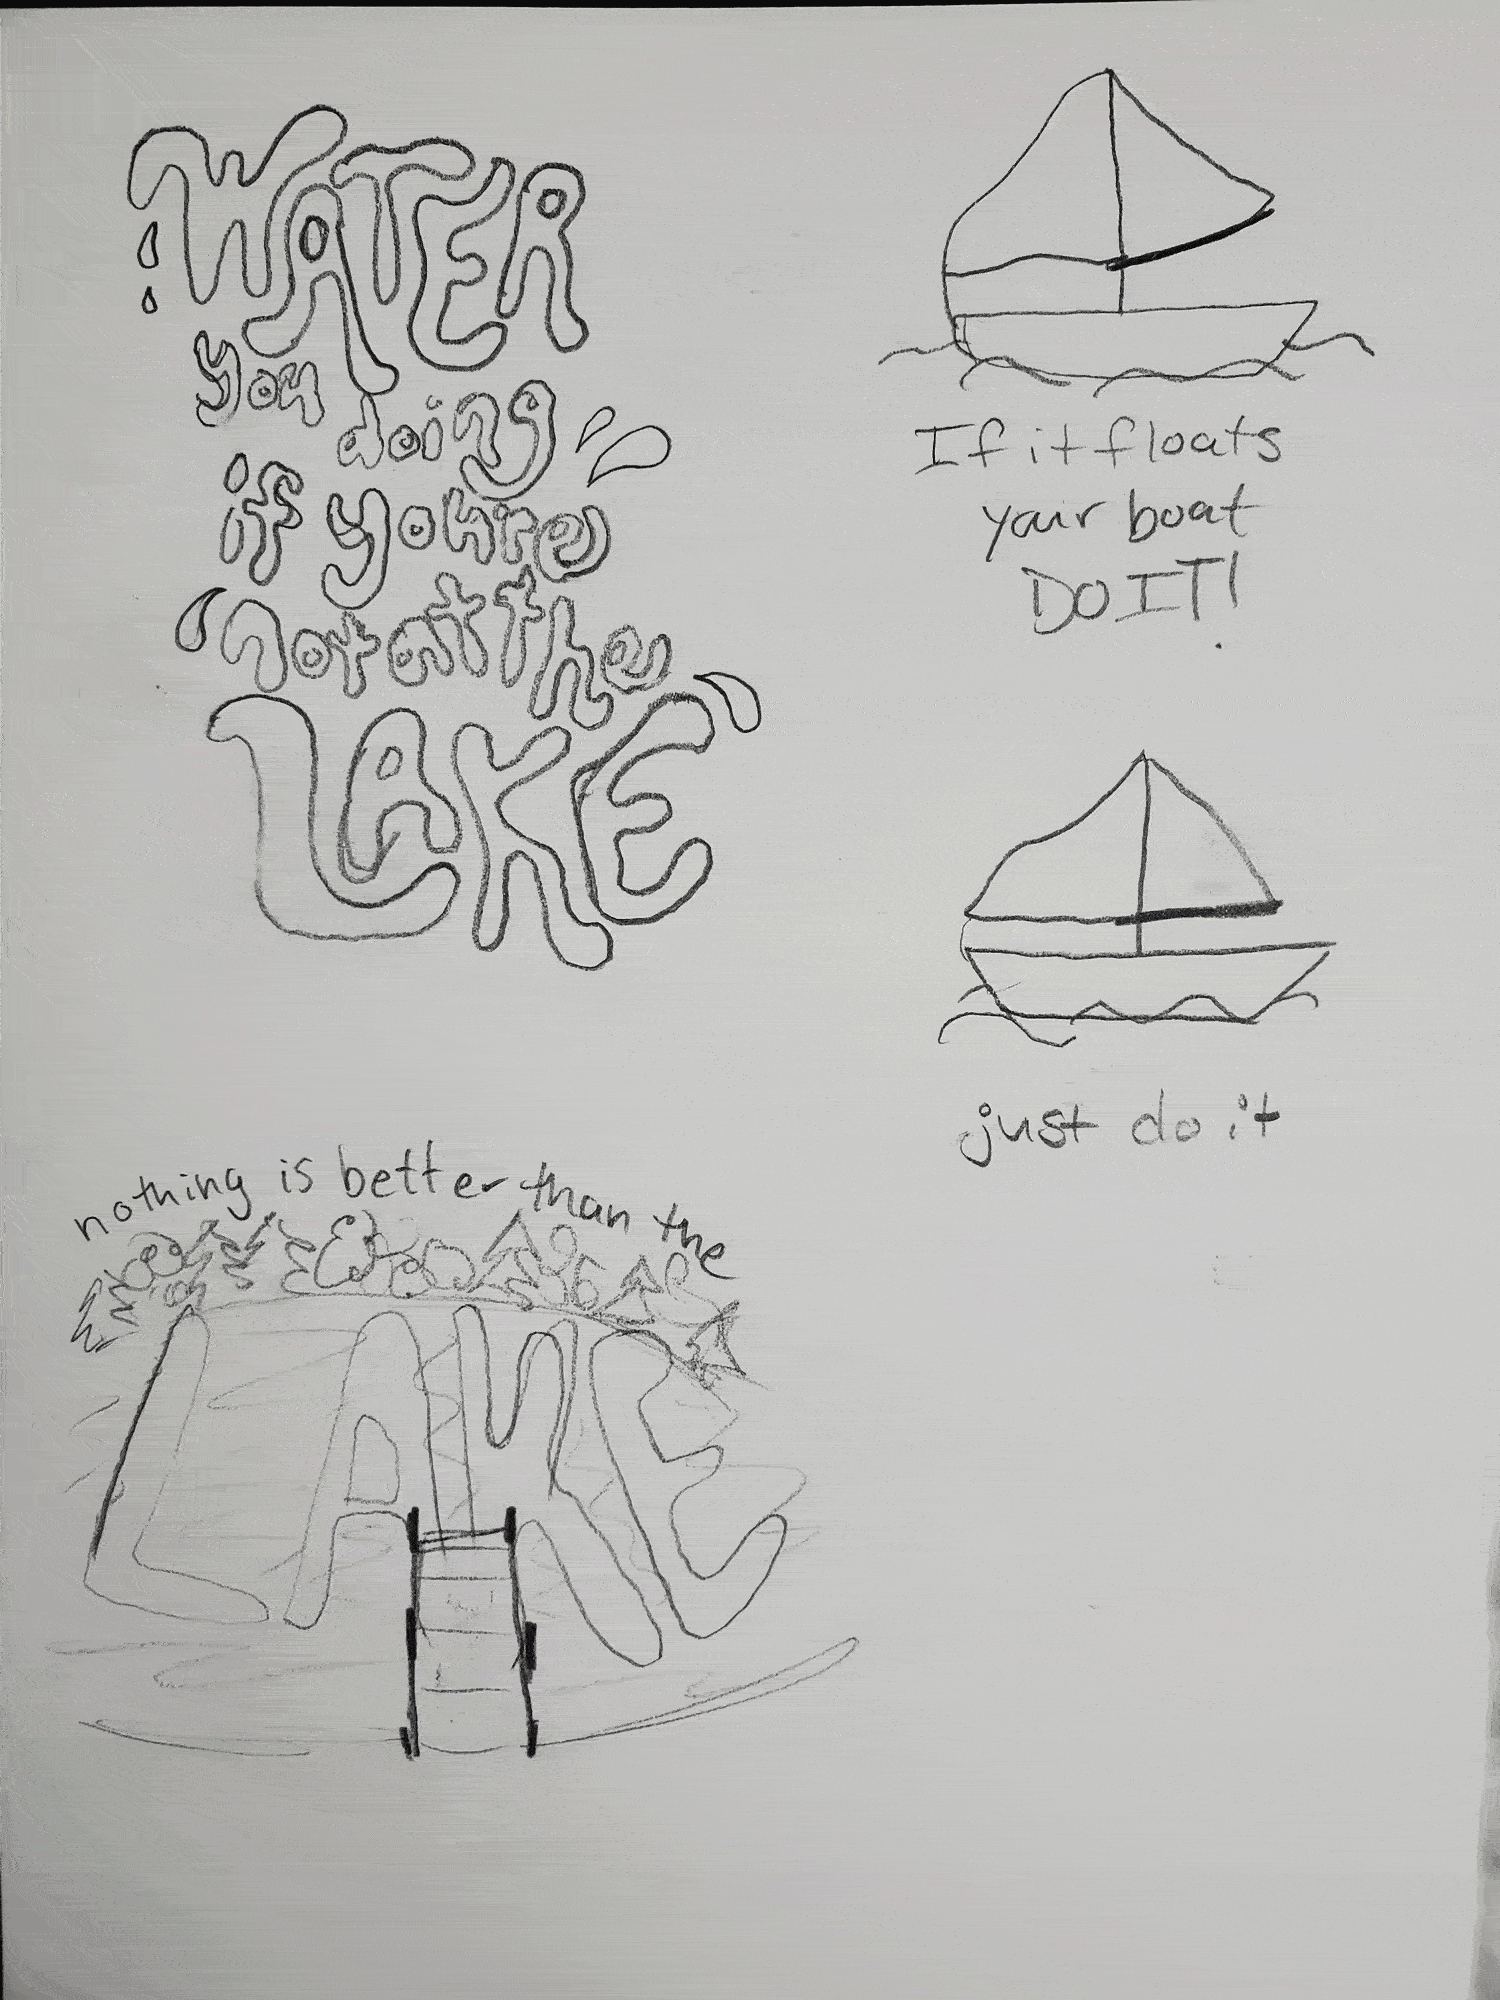 WATER
you doing
if you're
not at the
LAKE
If it floats
your boat
DO IT!
just do it
nothing is better than the
LAKE